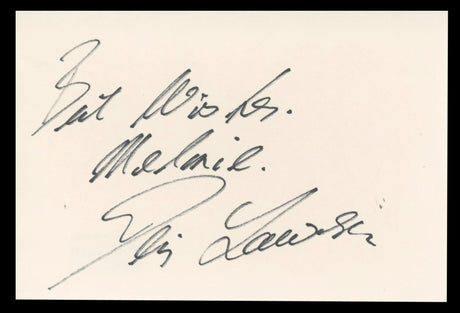 Best Wishes.
Melanie.
Denis Lawson